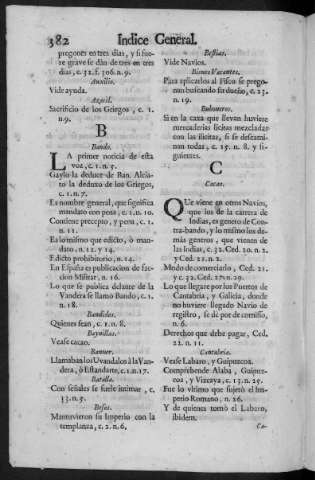 382 Indice General.
pregones en tres dias, y si fue-
re grave se dàn de tres en tres
dias, c. 32. f. 306. n. 9.
Auxilio.
Vide ayuda.
Sacrificio de los Griegos, c. 1.
n. 9.
B
Bando.
LA primer noticia de esta
voz, c. 1. n. 5.
Gaylo la deduce de Ban. Alcia-
to la deduxo de los Griegos,
c. 1. n. 7.
Es nombre general, que significa
mandato con pena, c. 1. n. 10.
Contiene precepto, y pena, c. 1.
n. 11.
Es lo mismo que edicto, ò man-
dato, n. 12. y 14.
Edicto prohibitorio, n. 14.
En España es publicacion de fac-
cion Militar, n. 16.
Lo que se publica delante de la
Vandera se llamo Bando, c. 1.
n. 18.
Bandidos.
Quienes sean, c. 1. n. 8.
Vease cacao.
Llamaban los Uvandalos à la Van-
dera, ò Estandarte, c. 1. n. 17.
Batalla.
Con señales se suele intimar, c.
33. n. 5.
Mantuvieron su Imperio con la
templanza, c. 2. n. 6.
Bestias.
Vide Navios.
Bienes Vacantes.
Para aplicarlos al Fisco se prego-
nan buscando su dueño, c. 23.
n. 19.
Buhoneros.
Si en la caxa que llevan huviere
mercaderias licitas mezcladas
con las ilicitas, si se descami-
nan todas, c. 15. n. 8. y si-
guientes.
C
Cacao.
QUe viene en otros Navios,
que los de la carrera de
Indias, es genero de Con-
tra-bando, y lo mismo los de-
màs generos, que vienen de
las Indias, c. 32. Ced. 20. n. 2.
y Ced. 21. n. 2.
Modo de comerciarlo, Ced. 21.
y c. 32. Ced. 27. n. 29.
Lo que llegare por los Puertos de
Cantabria, y Galicia, donde
no huviere llegado Navio de
registro, se dè por de comisso,
n. 6.
Derechos que debe pagar, Ced.
22. n. 11.
Cantabria.
Vease Labaro, y Guipuzcoa.
Comprehende Alaba, Guipuz-
coa, y Vizcaya, c. 13. n. 25.
Fue lo vltimo que sujetò el Im-
perio Romano, n. 26.
Y de quienta tomò el Labaro,
ibidem.
Ca-